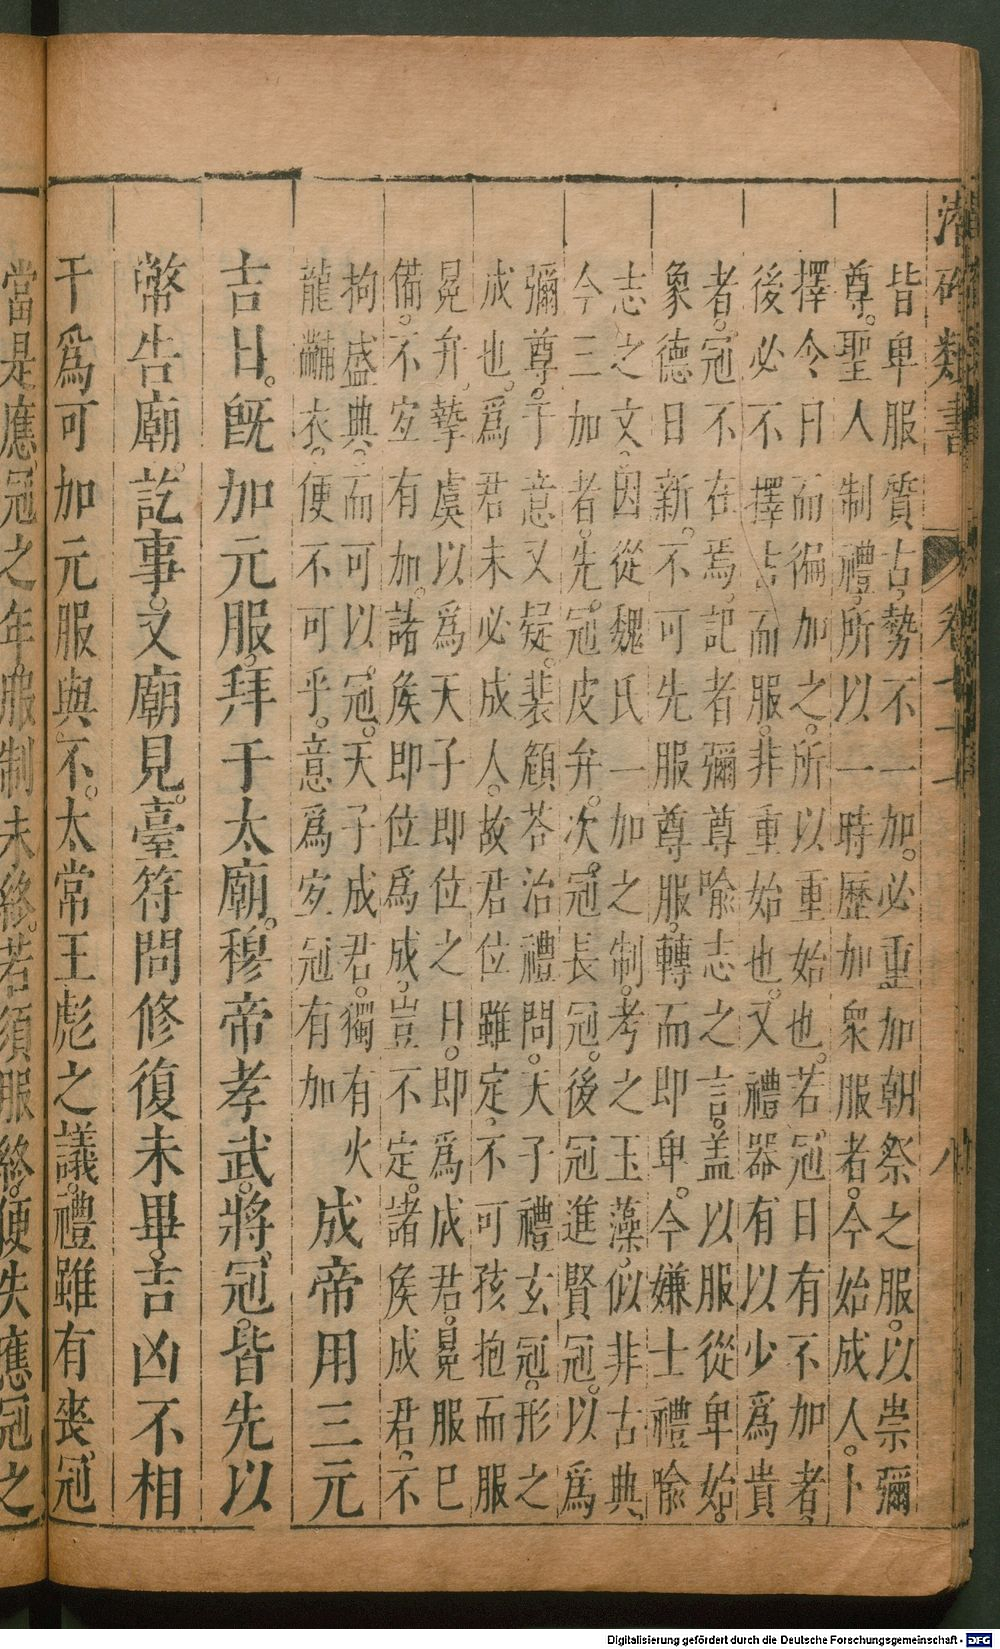 潛確類書 卷 八
皆卑服質古。勢不一加。必重加朝祭之服。以崇彌
尊。聖人制禮。所以一時歷加衆服者。今始成人。卜
擇令日而徧加之。所以重始也。若冠日有不加者。
後必不擇吉而服。非重始也。又禮器有以少爲貴
者。冠不在焉。記者彌尊喻志之言。蓋以服從卑始。
象德日新。不可先服尊服。轉而即卑。今嫌士禮喻
志之文。因從魏氏一加之制。考之玉藻。似非古典。
今三加者。先冠皮弁。次冠長冠。後冠進賢冠。以爲
彌尊。于意又疑。裴頠荅治禮問。天子禮玄冠。形之
成也。爲君未必成人。故君位雖定。不可孩抱而服
冕弁。摯虞以爲天子即位之日。即爲成君。冕服已
備。不宜有加。諸侯即位爲成。豈不定。諸侯成君。不
拘盛典。而可以冠。天子成君。獨有火
龍黼衣。便不可乎。意爲宜冠有加
成帝用三元
吉日。旣加元服。拜于太廟。穆帝孝武。將冠。皆先以
幣告廟。訖事。又廟見。臺符問修復未畢。吉凶不相
干。爲可加元服與不。太常王彪之議。禮雖有喪。冠
當是應冠之年。服制未終。若須服終。便失應冠之
Digitalisierung gefördert durch die Deutsche Forschungsgemeinschaft - DFG